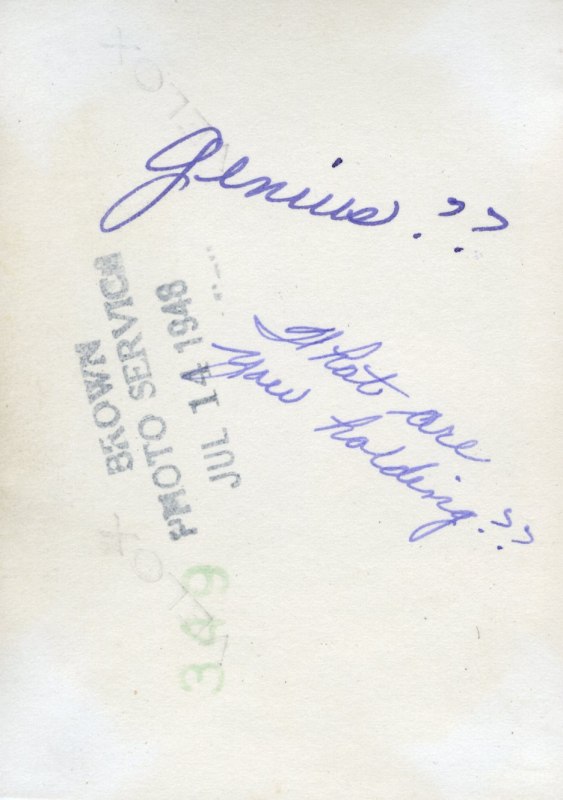 Genius??
What are
you holding??
BROWN
PHOTO SERVICE
JUL 14 1948
349